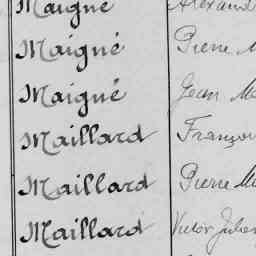 Maigné Alexand
Maigné Pierre M
Maigné Jean Ma
Maillard François
Maillard Pierre Ma
Maillard Victor Julien